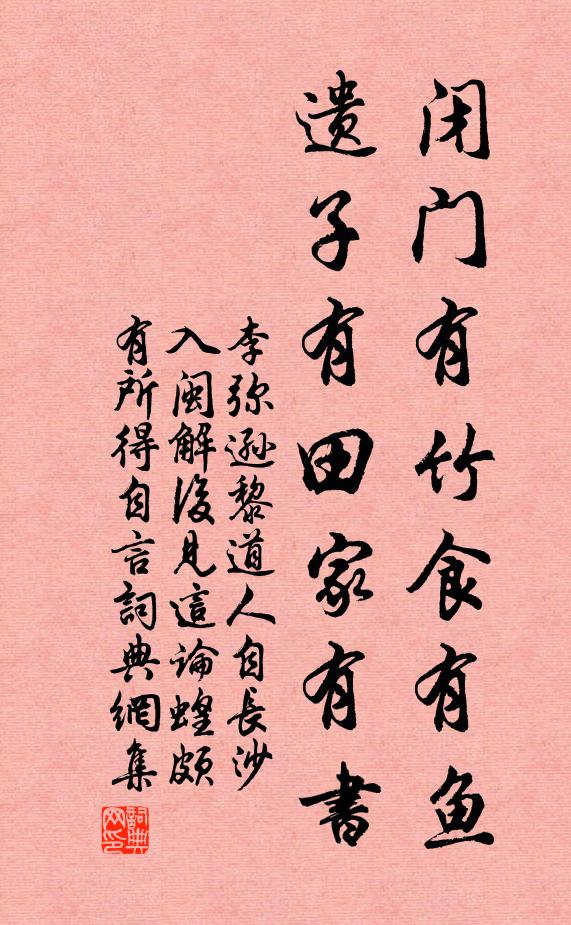 闭门有竹食有鱼
遗子有田家有书
李弥逊黎道人自长沙
入闽解后见這论蝗颇
有所得自言詞典網集
詞典
网印